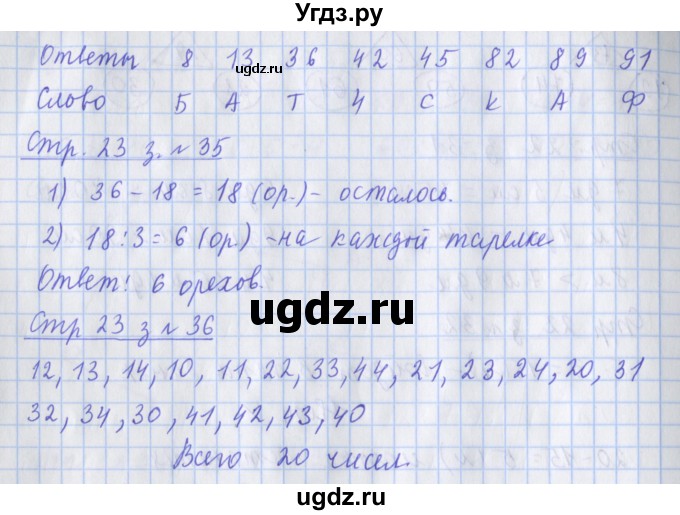 Угдз.ру
Ответы 8 13 36 42 45 82 89 91
ugdz.ru
Слово Б А Т Ч С К А Ф
Стр. 23 з. № 35
1) 36 - 18 = 18 (ор.) - осталось.
2) 18 : 3 = 6 (ор.) - на каждой тарелке
Ответ: 6 орехов.
ugdz.ru
Стр 23 з № 36
12, 13, 14, 10, 11, 22, 33, 44, 21, 23, 24, 20, 31
32, 34, 30, 41, 42, 43, 40
Всего 20 чисел.
ugdz.ru
ugdz.ru